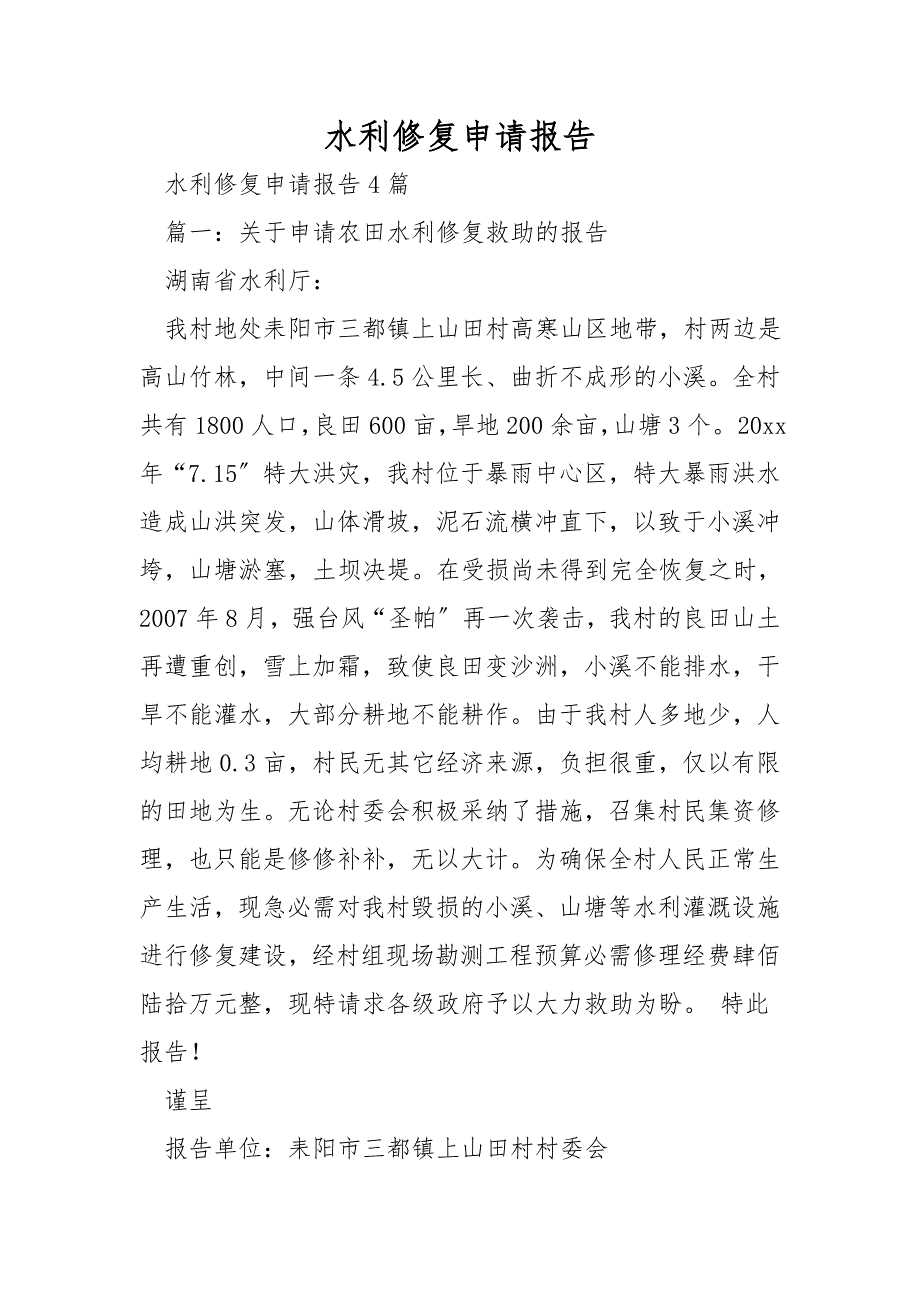 水利修复申请报告
水利修复申请报告4篇
篇一：关于申请农田水利修复救助的报告
湖南省水利厅：
我村地处耒阳市三都镇上山田村高寒山区地带，村两边是
高山竹林，中间一条4.5公里长、曲折不成形的小溪。全村
共有1800人口，良田600亩，旱地200余亩，山塘3个。20xx
年“7.15〞特大洪灾，我村位于暴雨中心区，特大暴雨洪水
造成山洪突发，山体滑坡，泥石流横冲直下，以致于小溪冲
垮，山塘淤塞，土坝决堤。在受损尚未得到完全恢复之时，
2007年8月，强台风“圣帕〞再一次袭击，我村的良田山土
再遭重创，雪上加霜，致使良田变沙洲，小溪不能排水，干
旱不能灌水，大部分耕地不能耕作。由于我村人多地少，人
均耕地0.3亩，村民无其它经济来源，负担很重，仅以有限
的田地为生。无论村委会积极采纳了措施，召集村民集资修
理，也只能是修修补补，无以大计。为确保全村人民正常生
产生活，现急必需对我村毁损的小溪、山塘等水利灌溉设施
进行修复建设，经村组现场勘测工程预算必需修理经费肆佰
陆拾万元整，现特请求各级政府予以大力救助为盼。 特此
报告！
谨呈
报告单位：耒阳市三都镇上山田村村委会